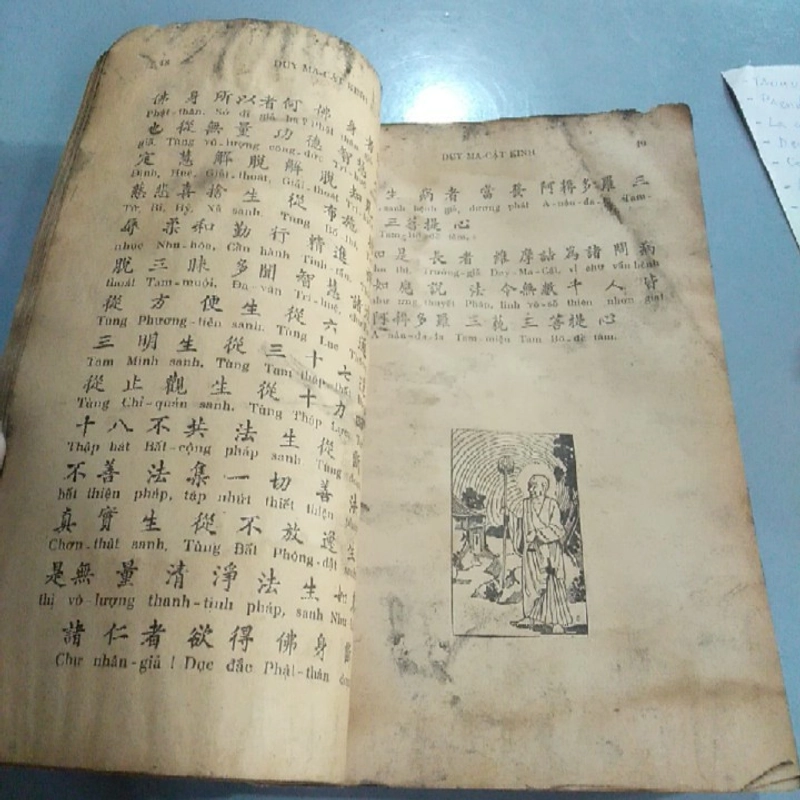 DUY MA-CẬT KINH
佛身所以者何佛身者
Phật-thân. Sở dĩ giả hà? Phật thân
也從無量功德智慧
giả, Tùng vô-lượng công-đức Trí-
定慧解脫解脫知
Định, Huệ, Giải-thoát, Giải-thoát Tri-
慈悲喜捨生從布施
Từ, Bi, Hỷ, Xả sanh. Tùng Bố thí,
辱柔和勤行精進
nhục Nhu-hòa, Cần hành Tinh-tấn,
脫三昧多聞智慧諸
thoát Tam-muội, Đa-văn Trí-huệ, chư
從方便生從六
Tùng Phương-tiện sanh. Tùng Lục
三明生從三十七
Tam Minh sanh, Tùng Tam thập thất
從止觀生從十力
Tùng Chỉ-quán sanh. Tùng Thập Lực,
十八不共法生從
Thập bát Bất-cộng pháp sanh Tùng
不善法集一切善
bất thiện pháp, tập nhứt thiết thiện
真實生從不放逸生
Chơn-thật sanh, Tùng Bất Phóng-dật
是無量清淨法生如
thị vô-lượng thanh-tịnh pháp, sanh Như
諸仁者欲得佛身
Chư nhân-giả ! Dục đắc Phật-thân
DUY MA-CẬT KINH 49
生病者當發阿耨多羅三
sanh bệnh giả, đương phát A-nậu-đa-la Tam-
三菩提心
Tam bồ-đề tâm,
如是長者維摩詰為諸問病
như thị, Trưởng-giả Duy-Ma-Cật, vị chư vấn bệnh
如應說法令無數千人皆
như ưng thuyết Pháp, linh vô-số thiên nhơn giai
阿耨多羅三菩提心
A-nậu-đa-la Tam-miệu Tam Bồ-đề tâm.